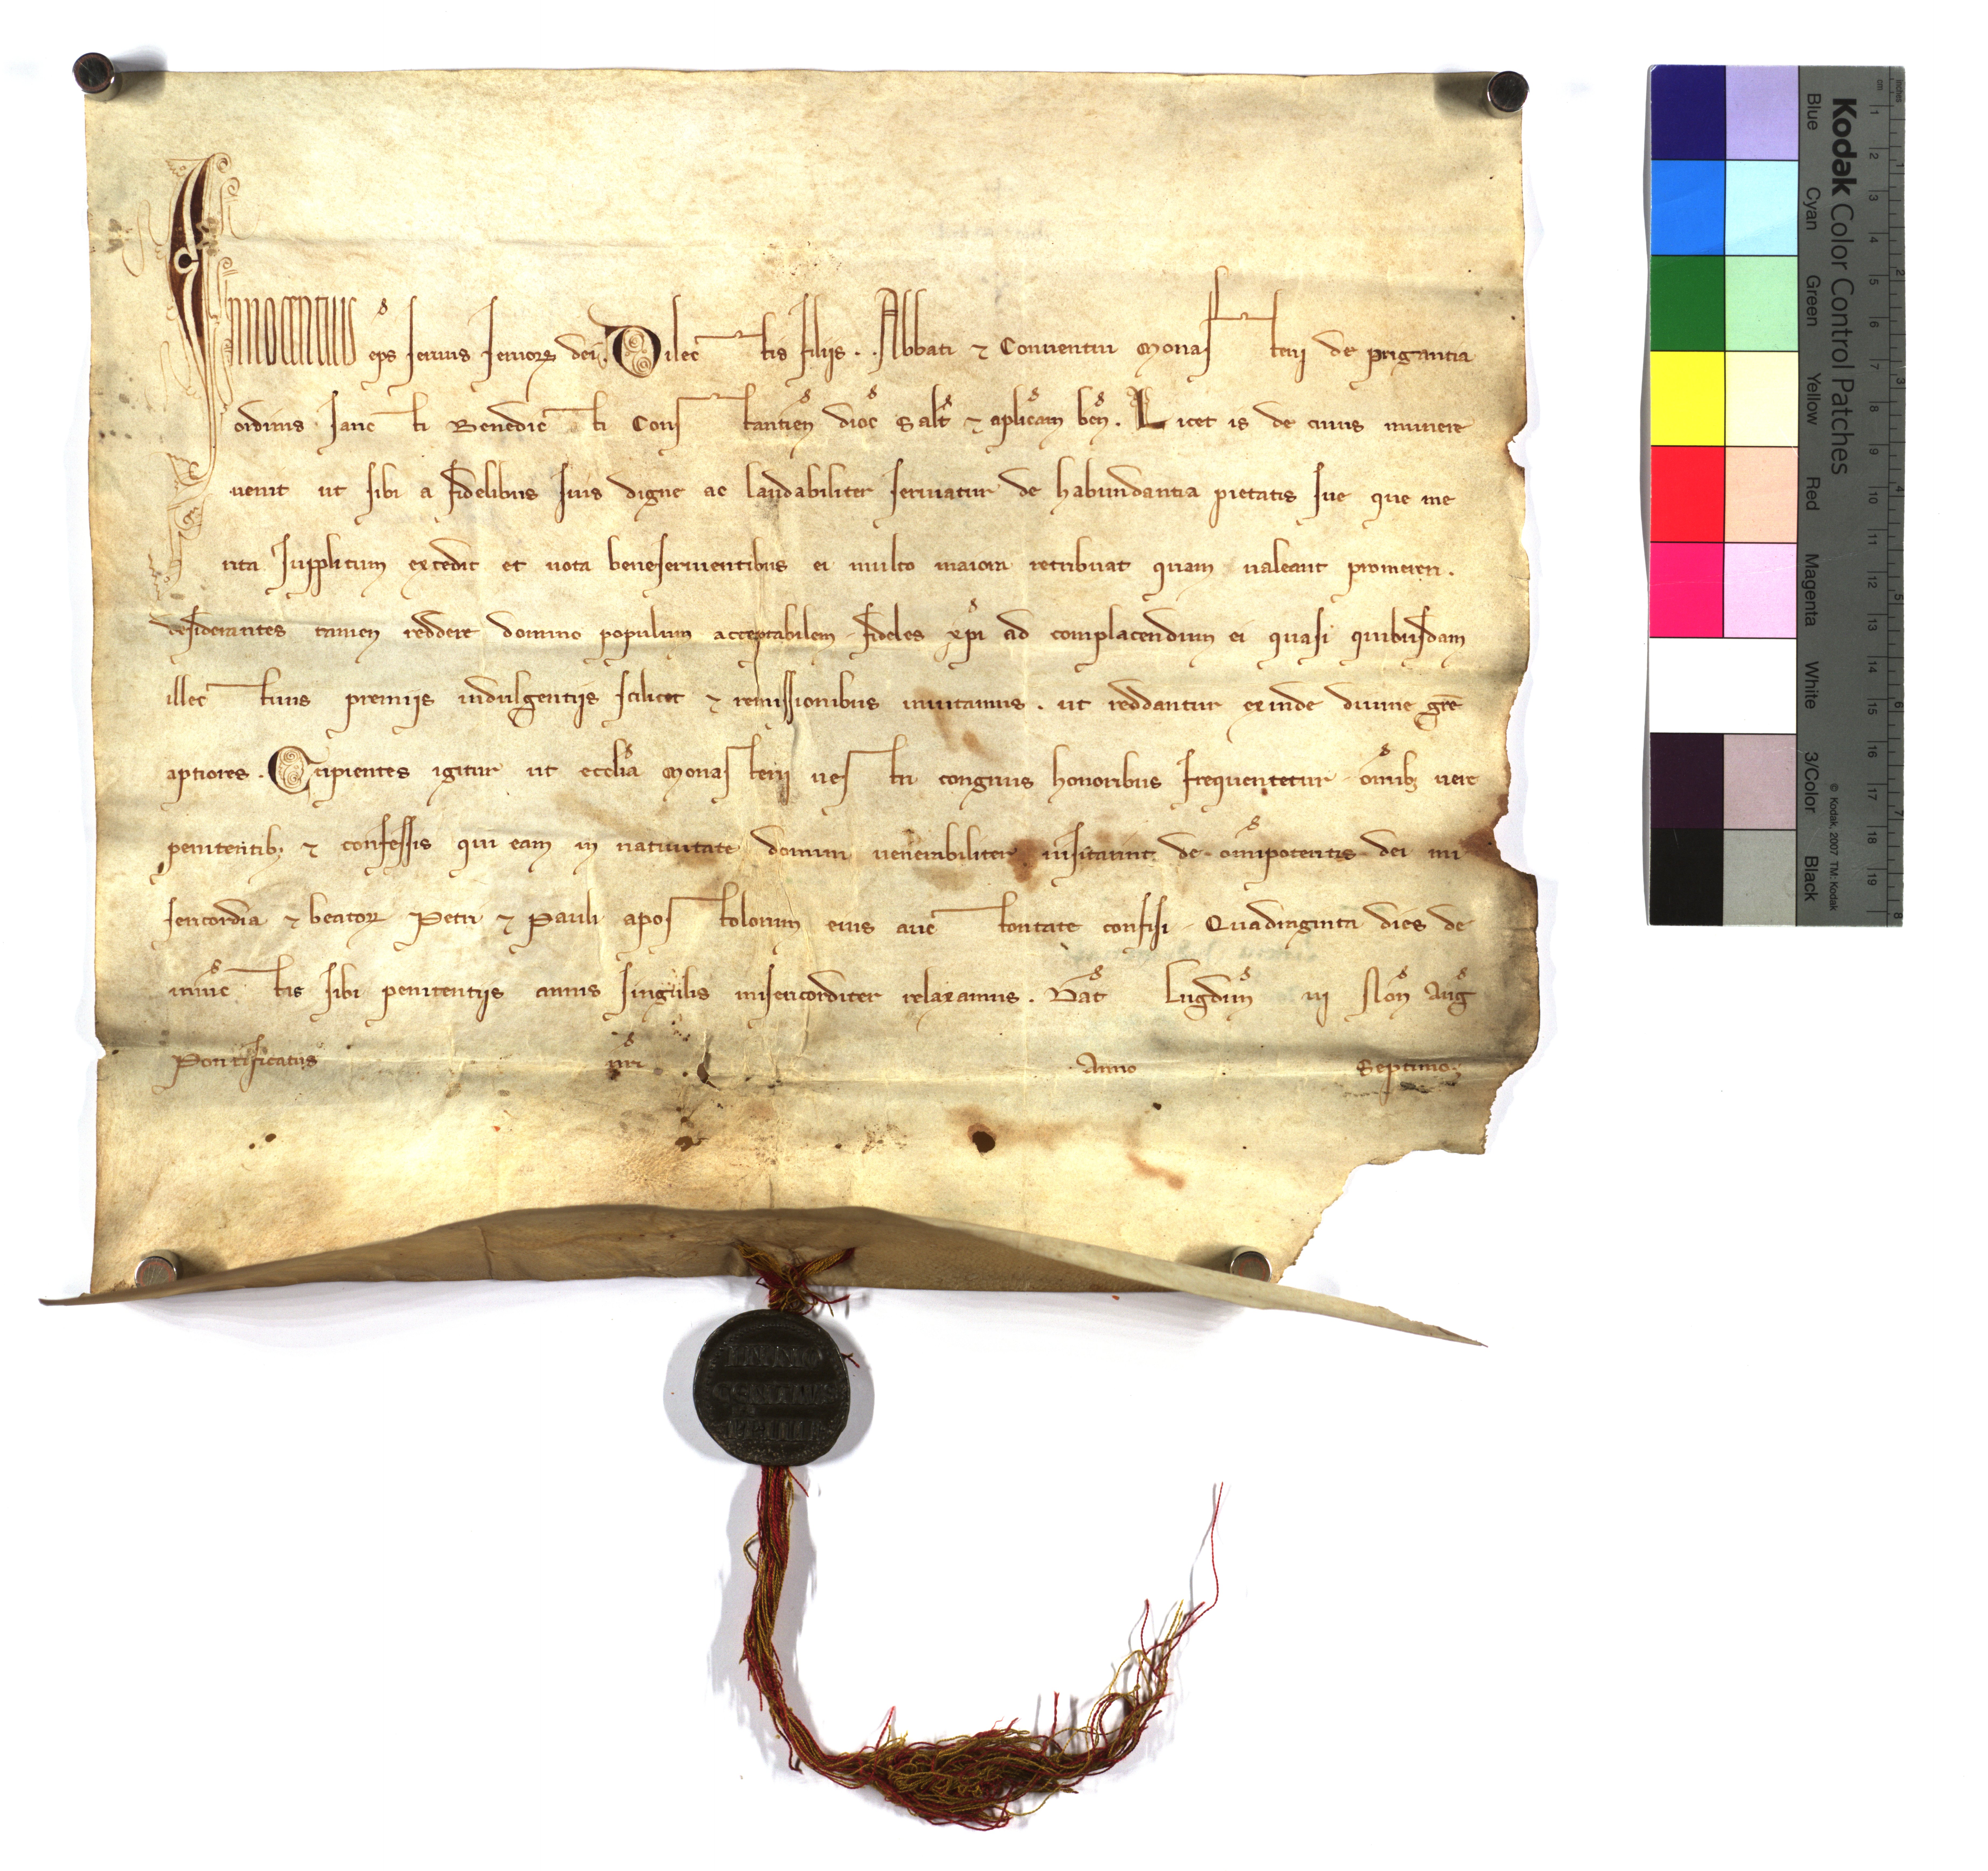 Innocentius ep̄s seruus seruorꝝ dei. Dilectis filiis . . Abbati ⁊ Conuentui Monasterii de prigantia
ordinis sancti Benedicti Constantien̄ dioc̄ Salt̄ ⁊ ap̄licam ben̄. Licet is de cuius munere
uenit ut sibi a fidelibus suis digne ac laudabiliter seruiatur de habundantia pietatis sue que me
rita supplicum excedit et uota beneseruientibus ei multo maiora retribuat quam ualeant promereri.
desiderantes tamen reddere domino populum acceptabilem fideles xp̄i ad complacendum ei quasi quibusdam
illectiuis premiis indulgentiis scilicet ⁊ remissionibus inuitamus. ut reddantur exinde diuine gr̄e
aptiores. Cupientes igitur ut eccl̄ia Monasterii uestri congruis honoribus frequentetur om̄ibꝫ uere
penitentibꝫ ⁊ confessis qui eam in natiuitate domini uenerabiliter uisitarint de om̄ipotentis dei mi
sericordia ⁊ beatorꝝ Petri ⁊ Pauli apostolorum eius auctoritate confisi Quadraginta dies de
iniūctis sibi penitentiis annis singulis misericorditer relaxamus. Dat̄ Lugdun̄ iij Non̄ Auḡ
Pontificatus nr̄i Anno Septimo.
INNO
CENTIUS
PP IIII
Kodak Color Control Patches
Blue Cyan Green Yellow Red Magenta White 3/Color Black
© Kodak, 2007 TM: Kodak
inches 1 2 3 4 5 6 7 8
cm 1 2 3 4 5 6 7 8 9 10 11 12 13 14 15 16 17 18 19